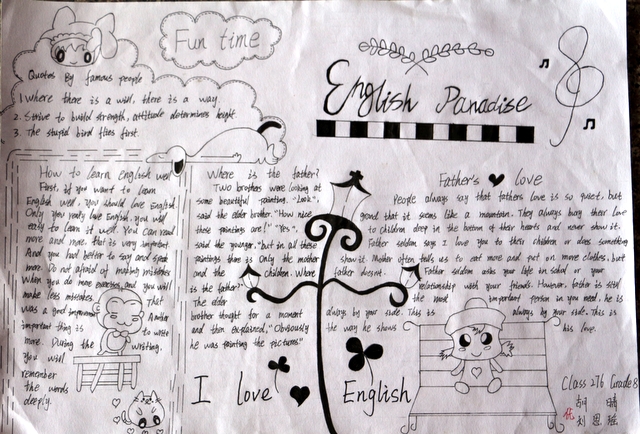 Fun time
English Paradise
Quotes By famous people:
1. Where there is a will, there is a way.
2. Strive to build strength, attitude determines height.
3. The stupid bird flies first.
How to learn English well
First, if you want to learn
English well. you should love English.
Only you really love English, you will
easily to learn it well. You can read
more and more. that is very important.
And you had better to say and speak
more. Do not afraid of making mistakes
When you do more exercises, and you will
make less mistakes. That
was a good important Another
important thing is to write
more. During the writing.
You will
remember
the words
deeply.
Where is the father?
Two brothers were looking at
some beautiful painting. "Look",
said the elder brother. "How nice
these paintings are!" "Yes",
said the younger. "but in all these
paintings there is Only the mother
and the children. Where
is the father?"
The elder
brother thought for a moment
and then explained, "Obviously
he was painting the pictures"
Father's love
People always say that fathers love is so quiet, but
grand that it seems like a mountain. They always bury their love
to children deep in the bottom of their hearts and never show it.
Father seldom says I love you to their children or does something
show it. Mother often tells us to eat more and put on more clothes, but
father doesnt. Father seldom asks your life in school or your
relationship with your friends. However, father is still
the most important person in you need, he is
always by your side. This is always by your side. This is
the way he shows his love.
I love English
Class 276 Grade 8
胡 晴
优 刘思瑶